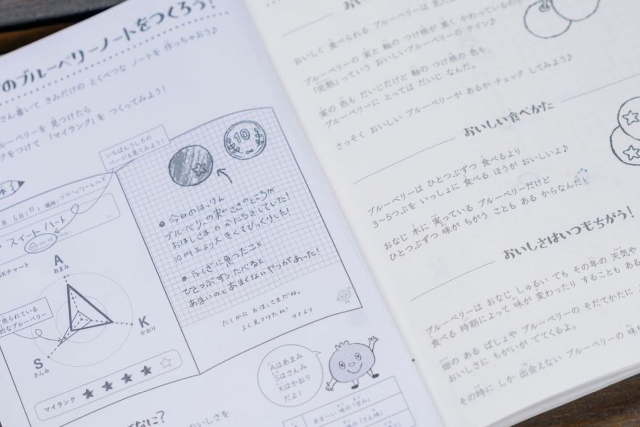 のブルーベリーノートをつくろう!
さん書いて きみだけの とくべつな ノートを 作っちゃおう♪
ルーベリーを 見つけたら
をつけて 「マイランク」を つくってみよう!
いちばんうしろの
ページを見てみよう!
10
●今日のはっけん
ブルーベリーの実のさきのところが
おほしさまの かたちをしていた!
10円玉より大きくてびっくりした!
●ふしぎに思ったこと
ひとつぶずつたべると
あまいのとあまくないやつがあった!
たしかに おほしさまだね。
よく見つけたね! マイより
スイートハート
SKチャート
A
あまみ
K
かおり
S
さんみ
売られている
的なブルーベリー
マイランク ★★★★☆
Aはあまみ
Sはさんみ
Kはかおり
だよ!
てなに?
おいしく 食べられる ブルーベリーは
ブルーベリーの 実と 軸の つけ根が 黒く かわっているのが
「完熟」っていう おいしいブルーベリーの サイン♪
実の 色も だいじだけど 軸の つけ根の 色も、
ブルーベリーに とっては だいじ なんだ。
さっそく おいしい ブルーベリーが あるか チェック してみよう♪
おいしい食べかた
ブルーベリーは ひとつぶずつ 食べるより
3~5つぶを いっしょに 食べる ほうが おいしいよ♪
おなじ 木に 実っている ブルーベリーだけど
ひとつぶずつ 味が ちがう ことも ある からなんだ!
おいしさはいつもちがう!
ブルーベリーは おなじ しゅるい でも その年の 天気や
食べる 時期によって 味が 変わったり することも ある
畑の ある ばしょや ブルーベリーの そだてかたに
おいしさに ちがいが でてくるよ。
その時に しか 出会えない ブルーベリーの 味